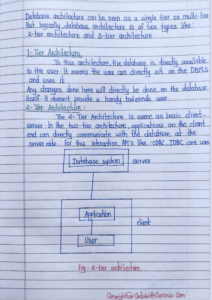 Database architecture can be seen as a single tier or multi-tier
But logically, database architecture is of two types like:
2-tier architecture and 3-tier architecture
1-Tier Architecture
In this architecture, the database is directly available
to the user. It means the user can directly sit on the DBMS
and uses it
Any changes done here will directly be done on the database
itself. It doesn't provide a handy tool end user.
2-Tier Architecture:
The 2-Tier Architecture is same as basic client-
server. In the two-tier architecture, applications on the client
end can directly communicate with the database at the
server side. For this interaction, API's like: ODBC, JDBC are used
Database system
server
Application
client
User
Fig: 2-tier architecture